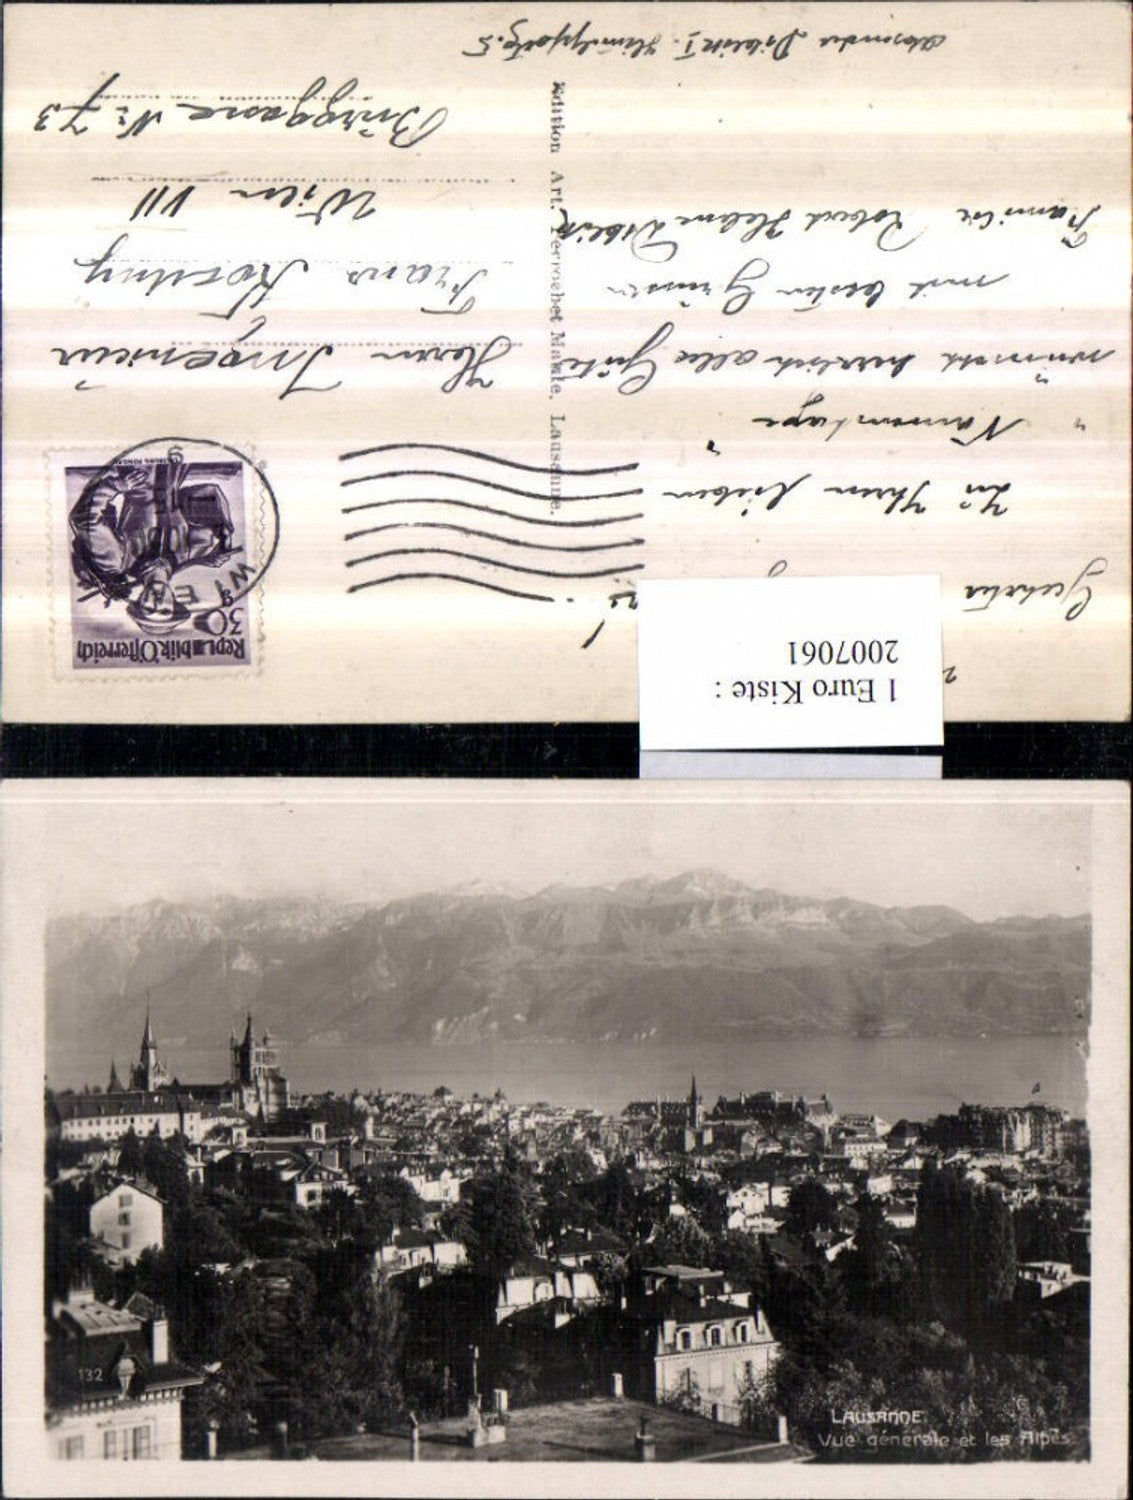 1 Euro Kiste :
2007061
Geehrter
Zu Ihrem lieben
Namenstage
wünschen herzlich alles Gute
mit besten Grüssen
Familie Robert Helene
Edition Art. Perrochet Matile, Lausanne.
Republik Österreich
30
WIEN
Herrn Ingenieur
Franz
Wien VII
Burggasse Nr 73
132
LAUSANNE.
Vue générale et les Alpes